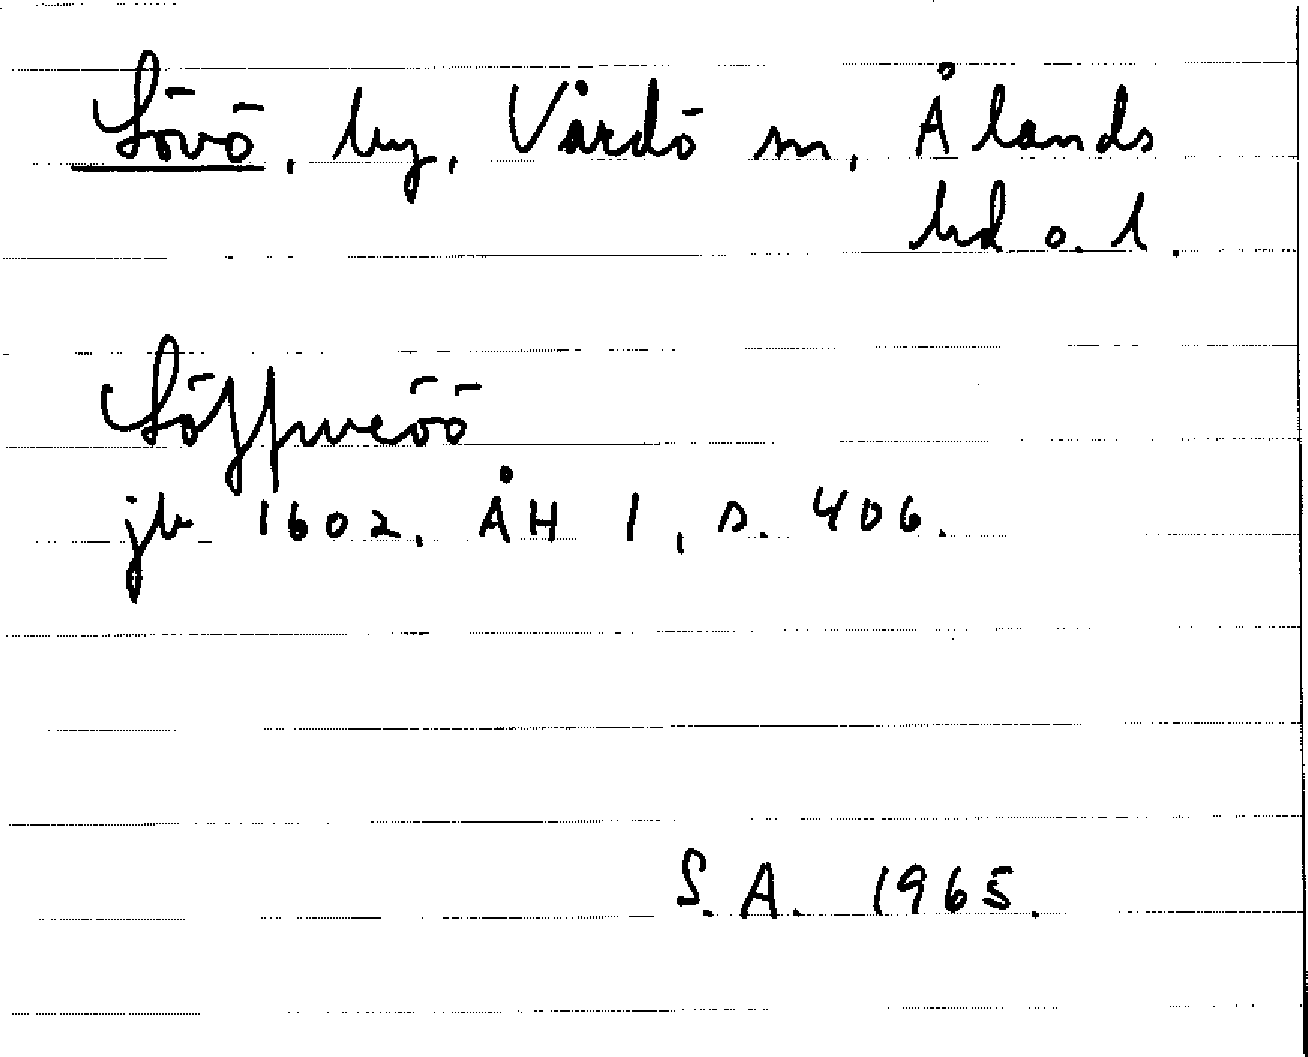 Lövö, by, Vårdö sn, Ålands
hd o. l.
Löffweöö
jb 1602. ÅH 1, s. 406.
S.A. 1965.